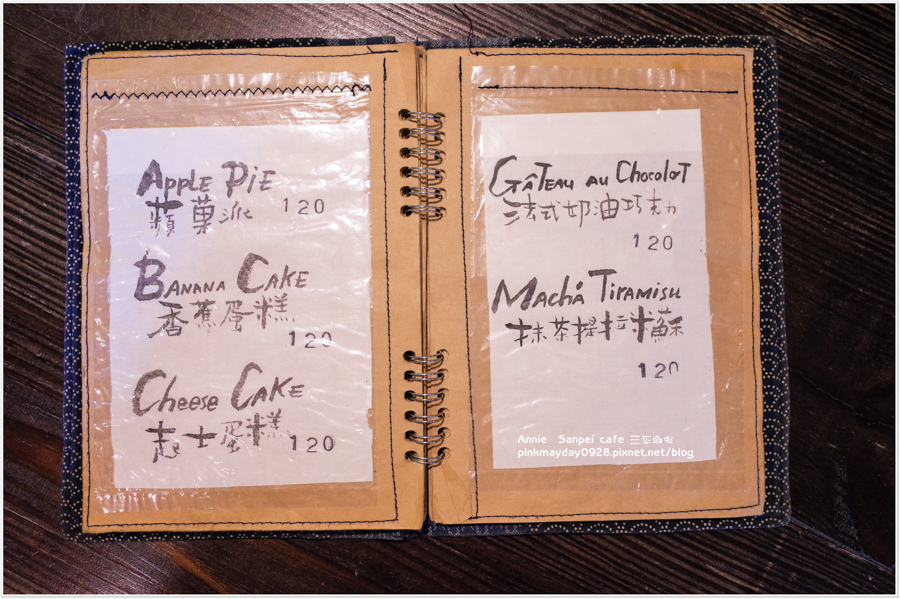 APPLE PIE
蘋菓派 120
BANANA CAKE
香蕉蛋糕
120
Cheese CAKE
起士蛋糕 120
GâTEAU AU ChocolaT
法式奶油巧克力
120
Machá TIRAMISU
抹茶提拉米蘇
120
Annie Sanpei cafe 三
pinkmayday0928.pixnet.net/blog